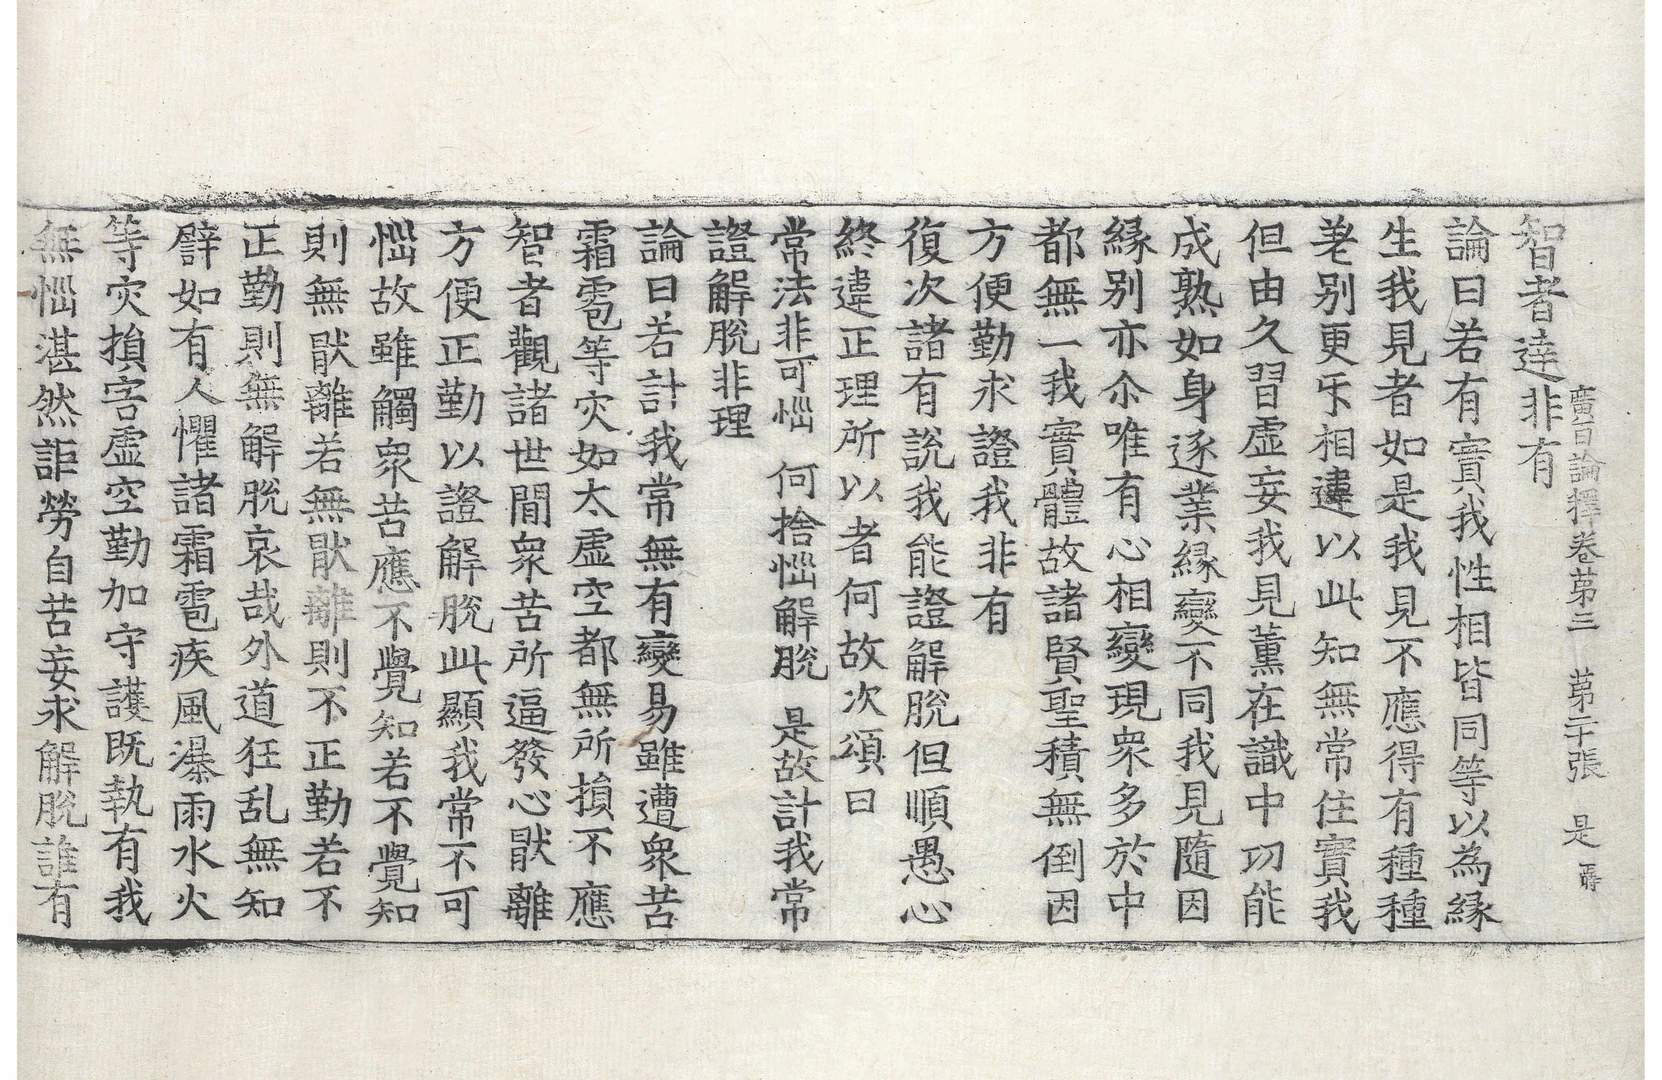 廣百論釋卷苐三　苐二十張　是
智者達非有
論曰若有實我性相皆同等以為縁
生我見者如是我見不應得有種種
差別更𠀕相違以此知無常住實我
但由久習虛妄我見薰在識中功能
成熟如身逐業縁變不同我見隨因
縁別亦尒唯有心相變現衆多於中
都無一我實體故諸賢聖積無倒因
方便勤求證我非有
復次諸有說我能證解脫但順愚心
終違正理所以者何故次頌曰
常法非可惱　何捨惱解脫　是故計我常
證解脫非理
論曰若計我常無有變易雖遭衆苦
霜雹等灾如太虛空都無所損不應
智者觀諸世間衆苦所逼發心猒離
方便正勤以證解脫此顯我常不可
惱故雖觸衆苦應不覺知若不覺知
則無猒離若無猒離則不正勤若不
正勤則無解脫哀哉外道狂乱無知
譬如有人懼諸霜雹疾風瀑雨水火
等灾損害虛空勤加守護既執有我
無惱湛然詎勞自苦妄求解脫誰有